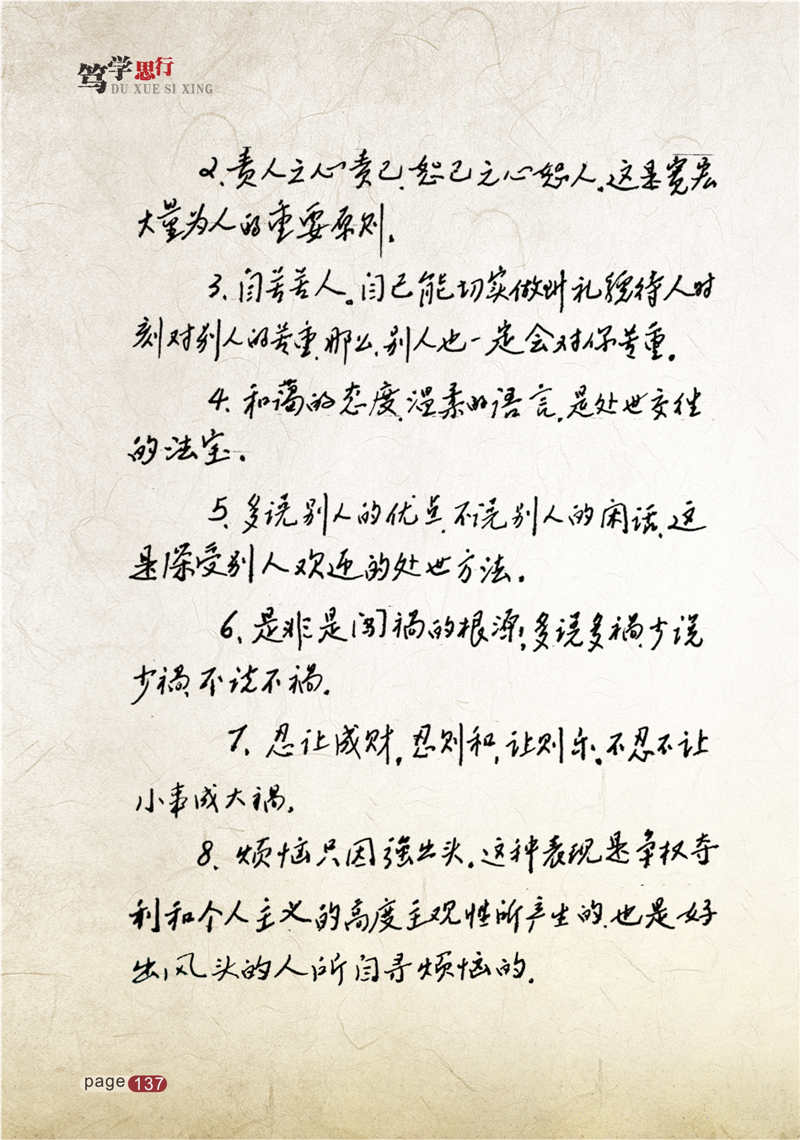 笃学思行
DU XUE SI XING
2、责人之心责己,恕己之心恕人。这是宽宏
大量为人的重要原则。
3、自苦苦人。自己能切实做到礼貌待人时
刻对别人的尊重,那么,别人也一定会对你尊重。
4、和蔼的态度,温柔的语言,是处世交往
的法宝。
5、多说别人的优点,不说别人的闲话,这
是深受别人欢迎的处世方法。
6、是非是闯祸的根源;多说多祸,少说
少祸,不说不祸。
7、忍让成财。忍则和,让则乐。不忍不让
小事成大祸。
8、烦恼只因强出头。这种表现是争权夺
利和个人主义的高度主观性所产生的,也是好
出风头的人所自寻烦恼的。
page 137